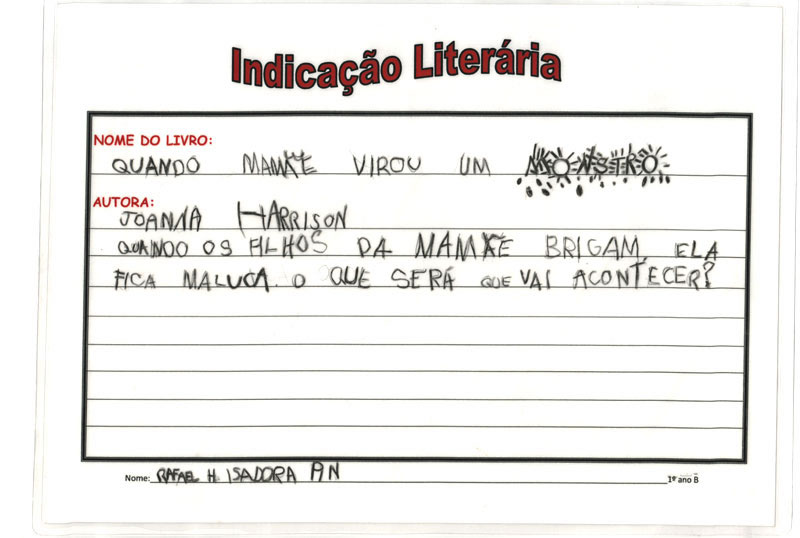 Indicação Literária
NOME DO LIVRO:
QUANDO MAMÃE VIROU UM MONSTRO
AUTORA:
JOANNA HARRISON
QUANDO OS FILHOS DA MAMÃE BRIGAM, ELA
FICA MALUCA. O QUE SERÁ QUE VAI ACONTECER?
Nome: RAFAEL H. ISADORA AN 1º ano B